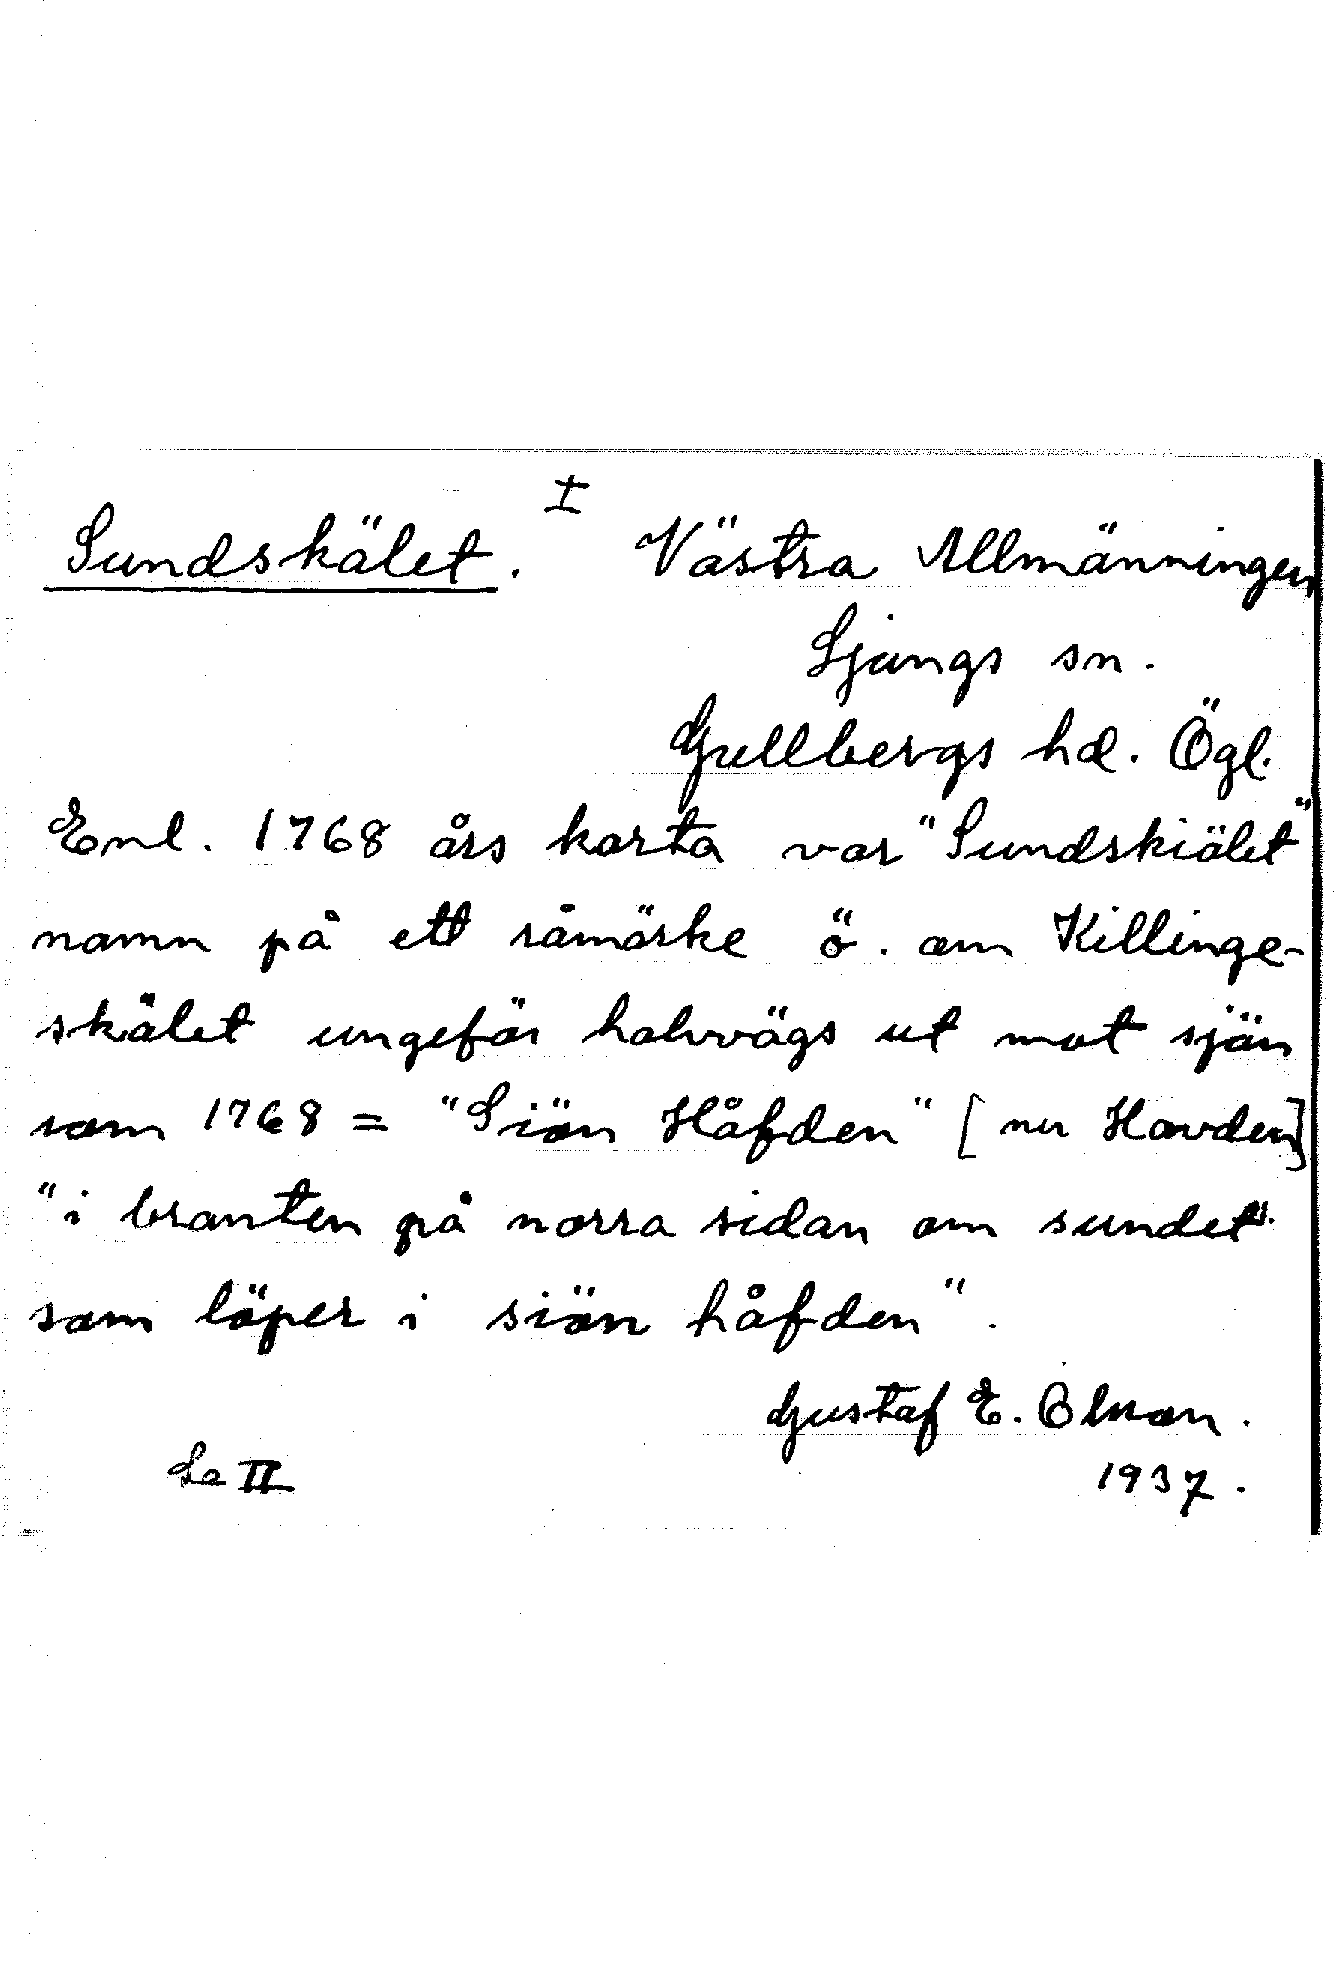 Sundskälet. I Västra Allmänningen
Ljungs sn.
Gullbergs hd. Ögl.
Enl. 1768 års karta var "Sundskiälet"
namn på ett råmärke ö. om Killinge-
skälet ungefär halvvägs ut mot sjön
som 1768 = "Siön Håfden" [nu Hovden]
"i branten på norra sidan om sundet
som löper i siön håfden".
Gustaf E. Olsson.
La II 1937.